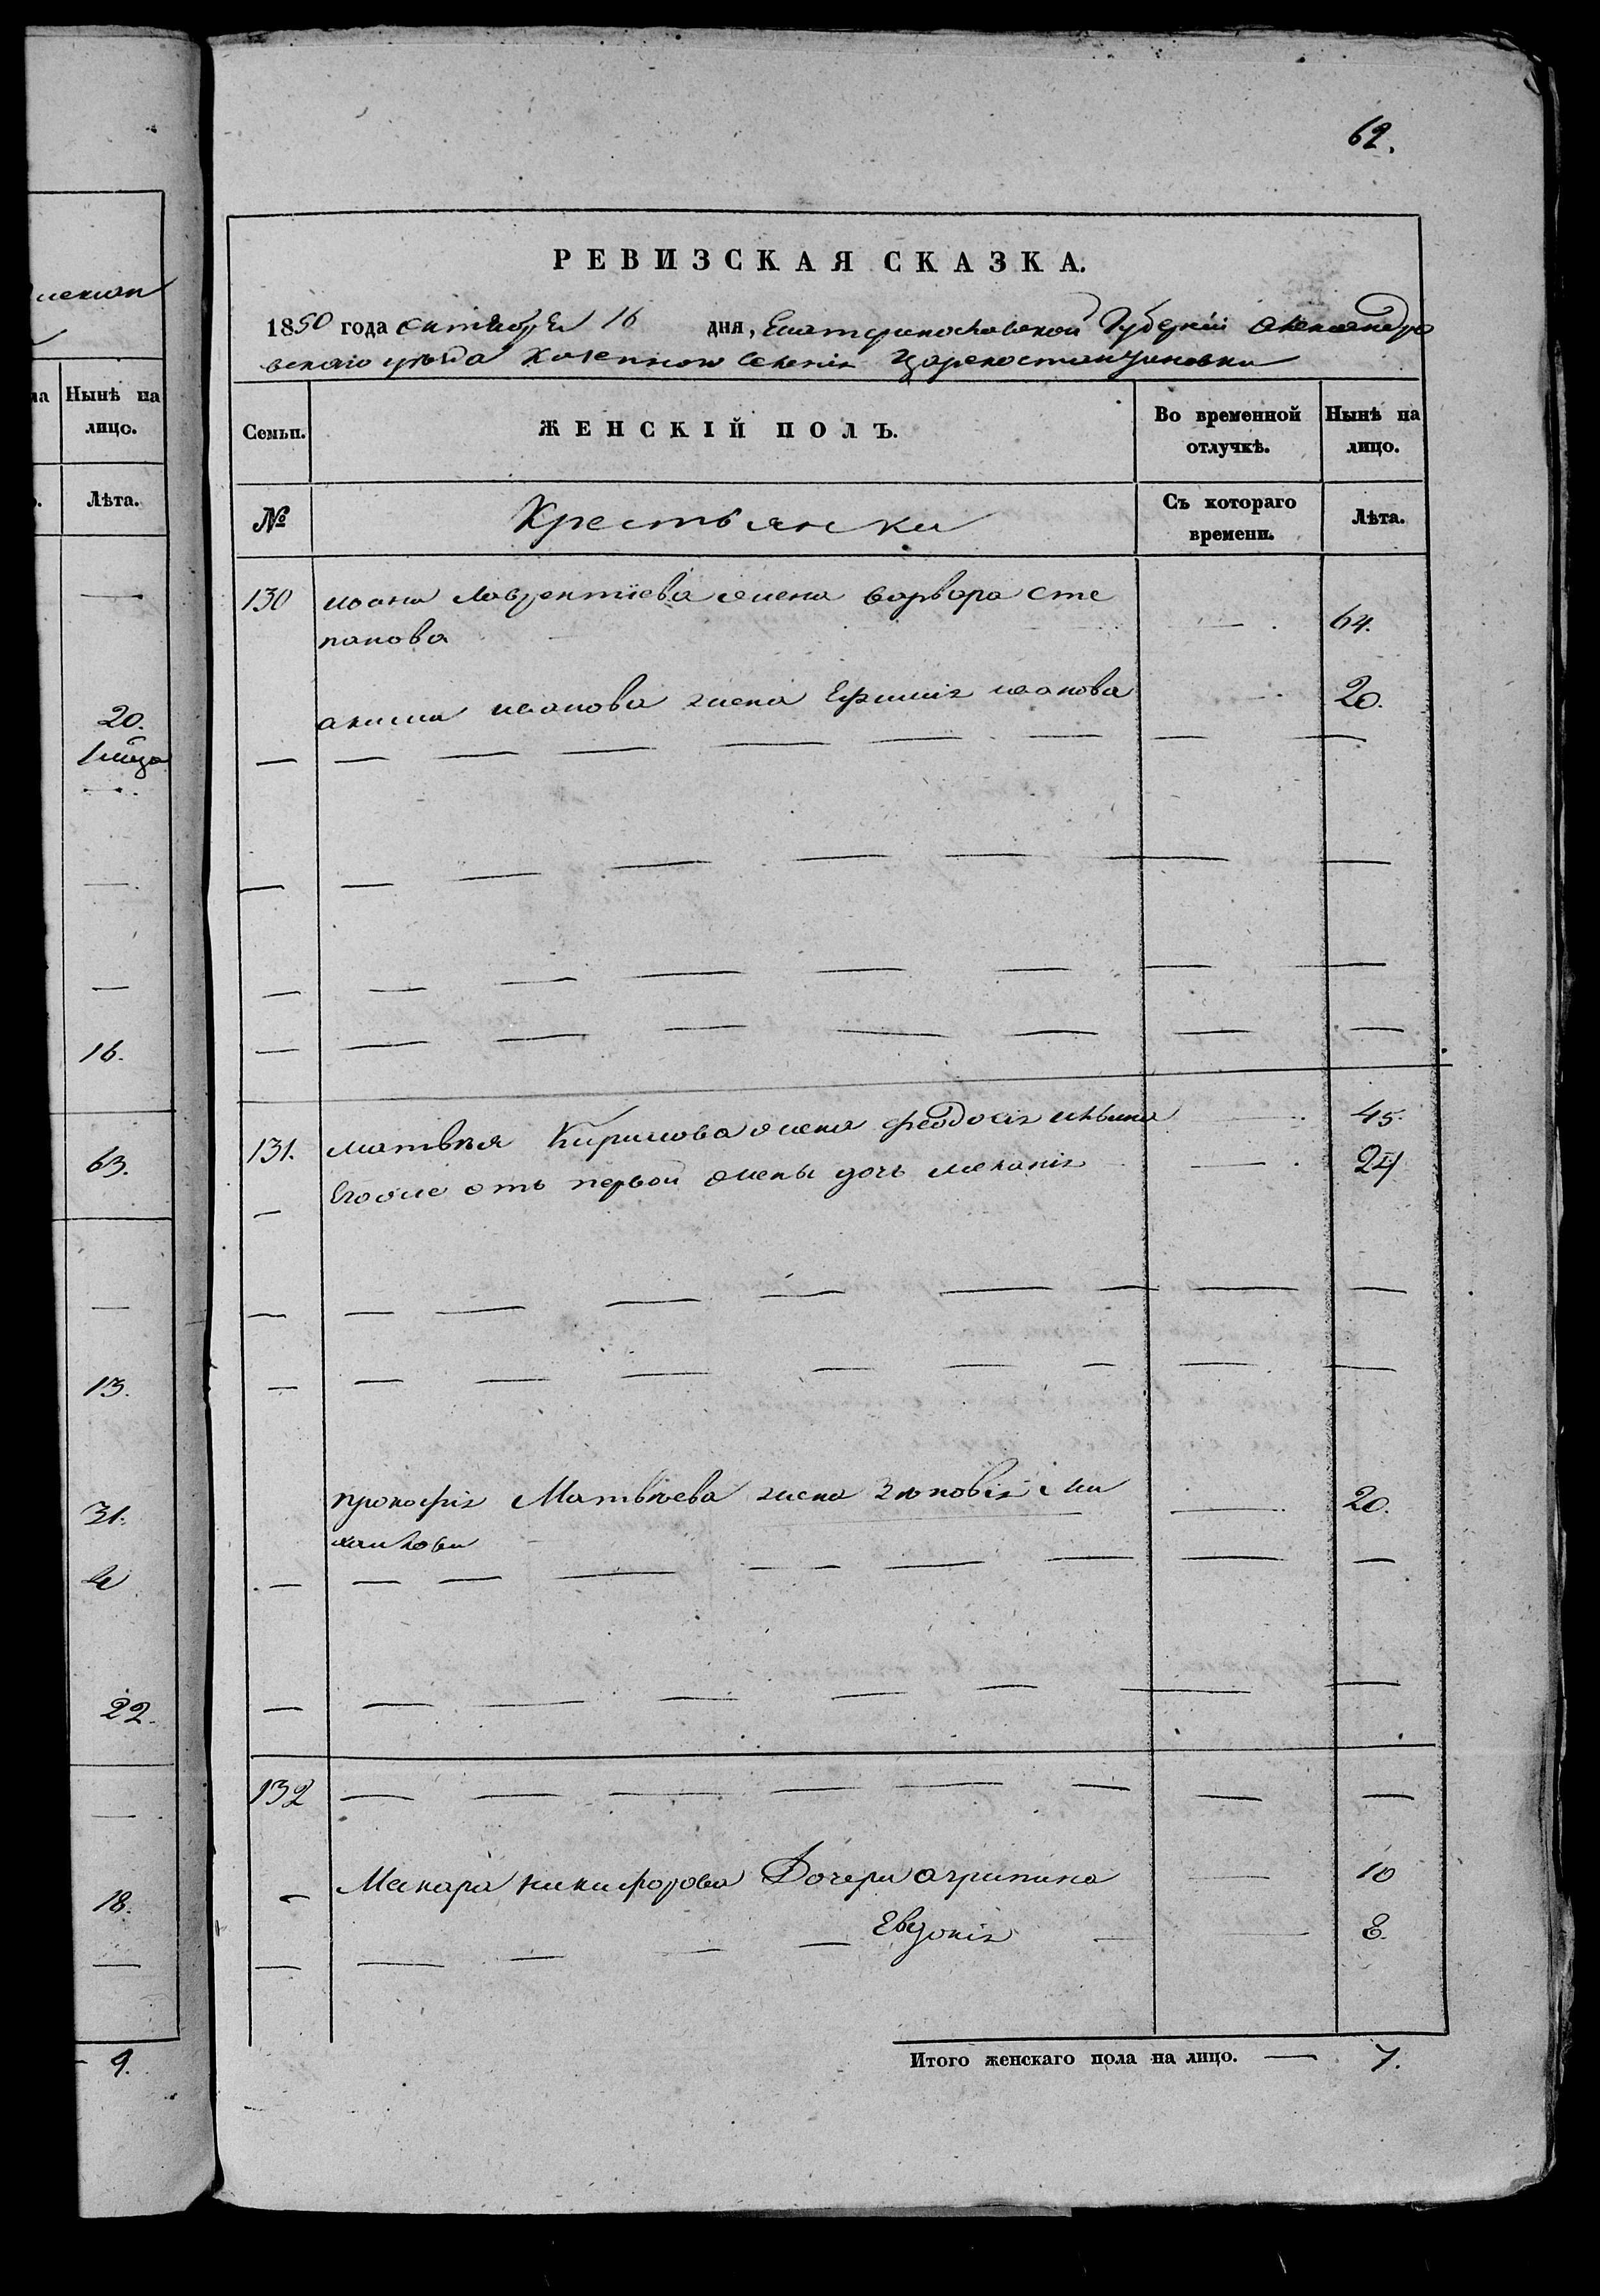 62.
РЕВИЗСКАЯ СКАЗКА.
1850 года октября 16 дня, Екатеринославской Губернии Александро
вскаго уезда казеннои Селенія Цареконстантиновки
Семьи.
ЖЕНСКІЙ ПОЛЪ.
Во временной отлучкѣ.
Нынѣ на лицо.
№
Крестьянки
Съ котораго времени.
Лѣта.
130 ивана Лаврентіева жена варвара Сте
панова 64.
акима иванова жена Ефимія иванова 20.
131. матвѣя Кирилова жена феодосія ильина 45.
Егоже отъ первой жены дочь меланія 24
прокофія Матвѣева жена Зиновія Ми
хаилова 20.
132
Макара никифорова Дочери агрипина 10
Евдокія 8.
Итого женскаго пола на лицо. 7.
Нынѣ на
лицо.
Лѣта.
20.
16.
63.
13.
31.
22.
18.
9.